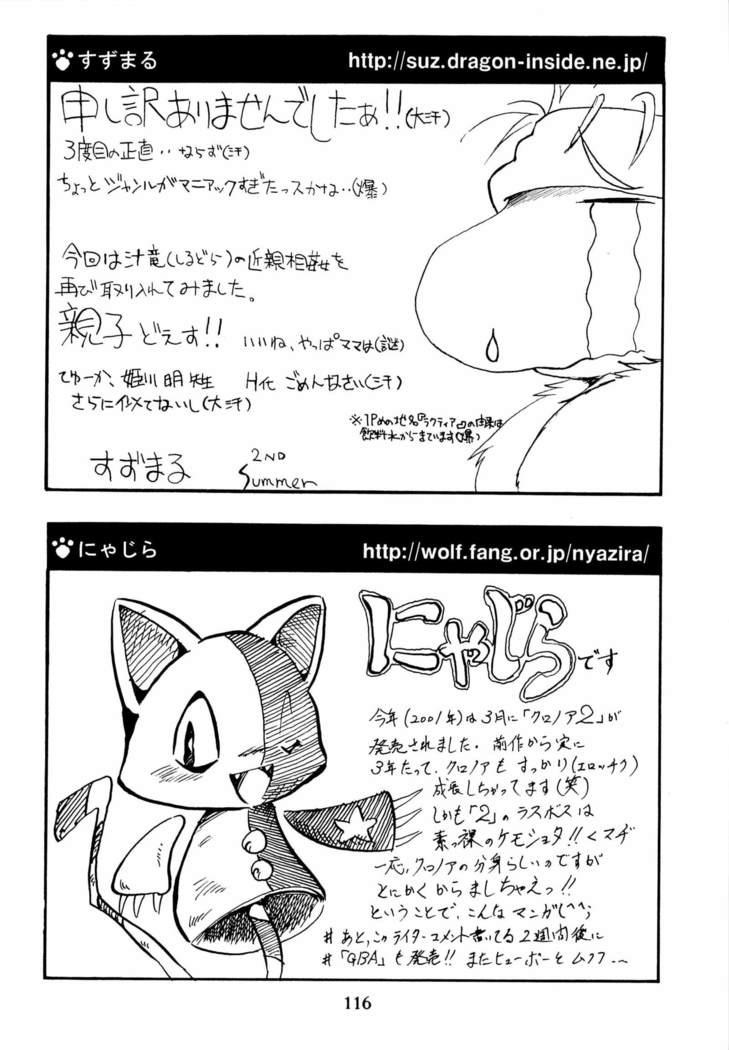 すずまる http://suz.dragon-inside.ne.jp/
申し訳ありませんでしたぁ!!(大汗)
3度目の正直‥ならず(汗)
ちょっとジャンルがマニアックすぎたっスかね‥(爆)
今回は汁竜(しるどら)の近親相姦を
再び取り入れてみました。
親子どえす!! いいね、やっぱママは(謎)
てゆーか、姫川明先生 H化ごめんなさい(汗)
さらに似てないし(大汗)
※1Pめの地名『ラクティア』の由来は
飲料水からきています(爆)
すずまる 2ND Summer
にゃじら http://wolf.fang.or.jp/nyazira/
にゃじらです
今年(2001年)は3月に「クロノア2」が
発売されました。前作から実に
3年たって、クロノアもすっかり(エロッチク)
成長しちゃってます(笑)
しかも「2」のラスボスは
素っ裸のケモショタ!!<マヂ
一応、クロノアの分身らしいのですが
とにかくからましちゃえっ!!
ということで、こんなマンガ(^^;
#あと、このライターコメント書いてる2週間後に
#「GBA」も発売!! またヒューポーとムフフ…〜
116